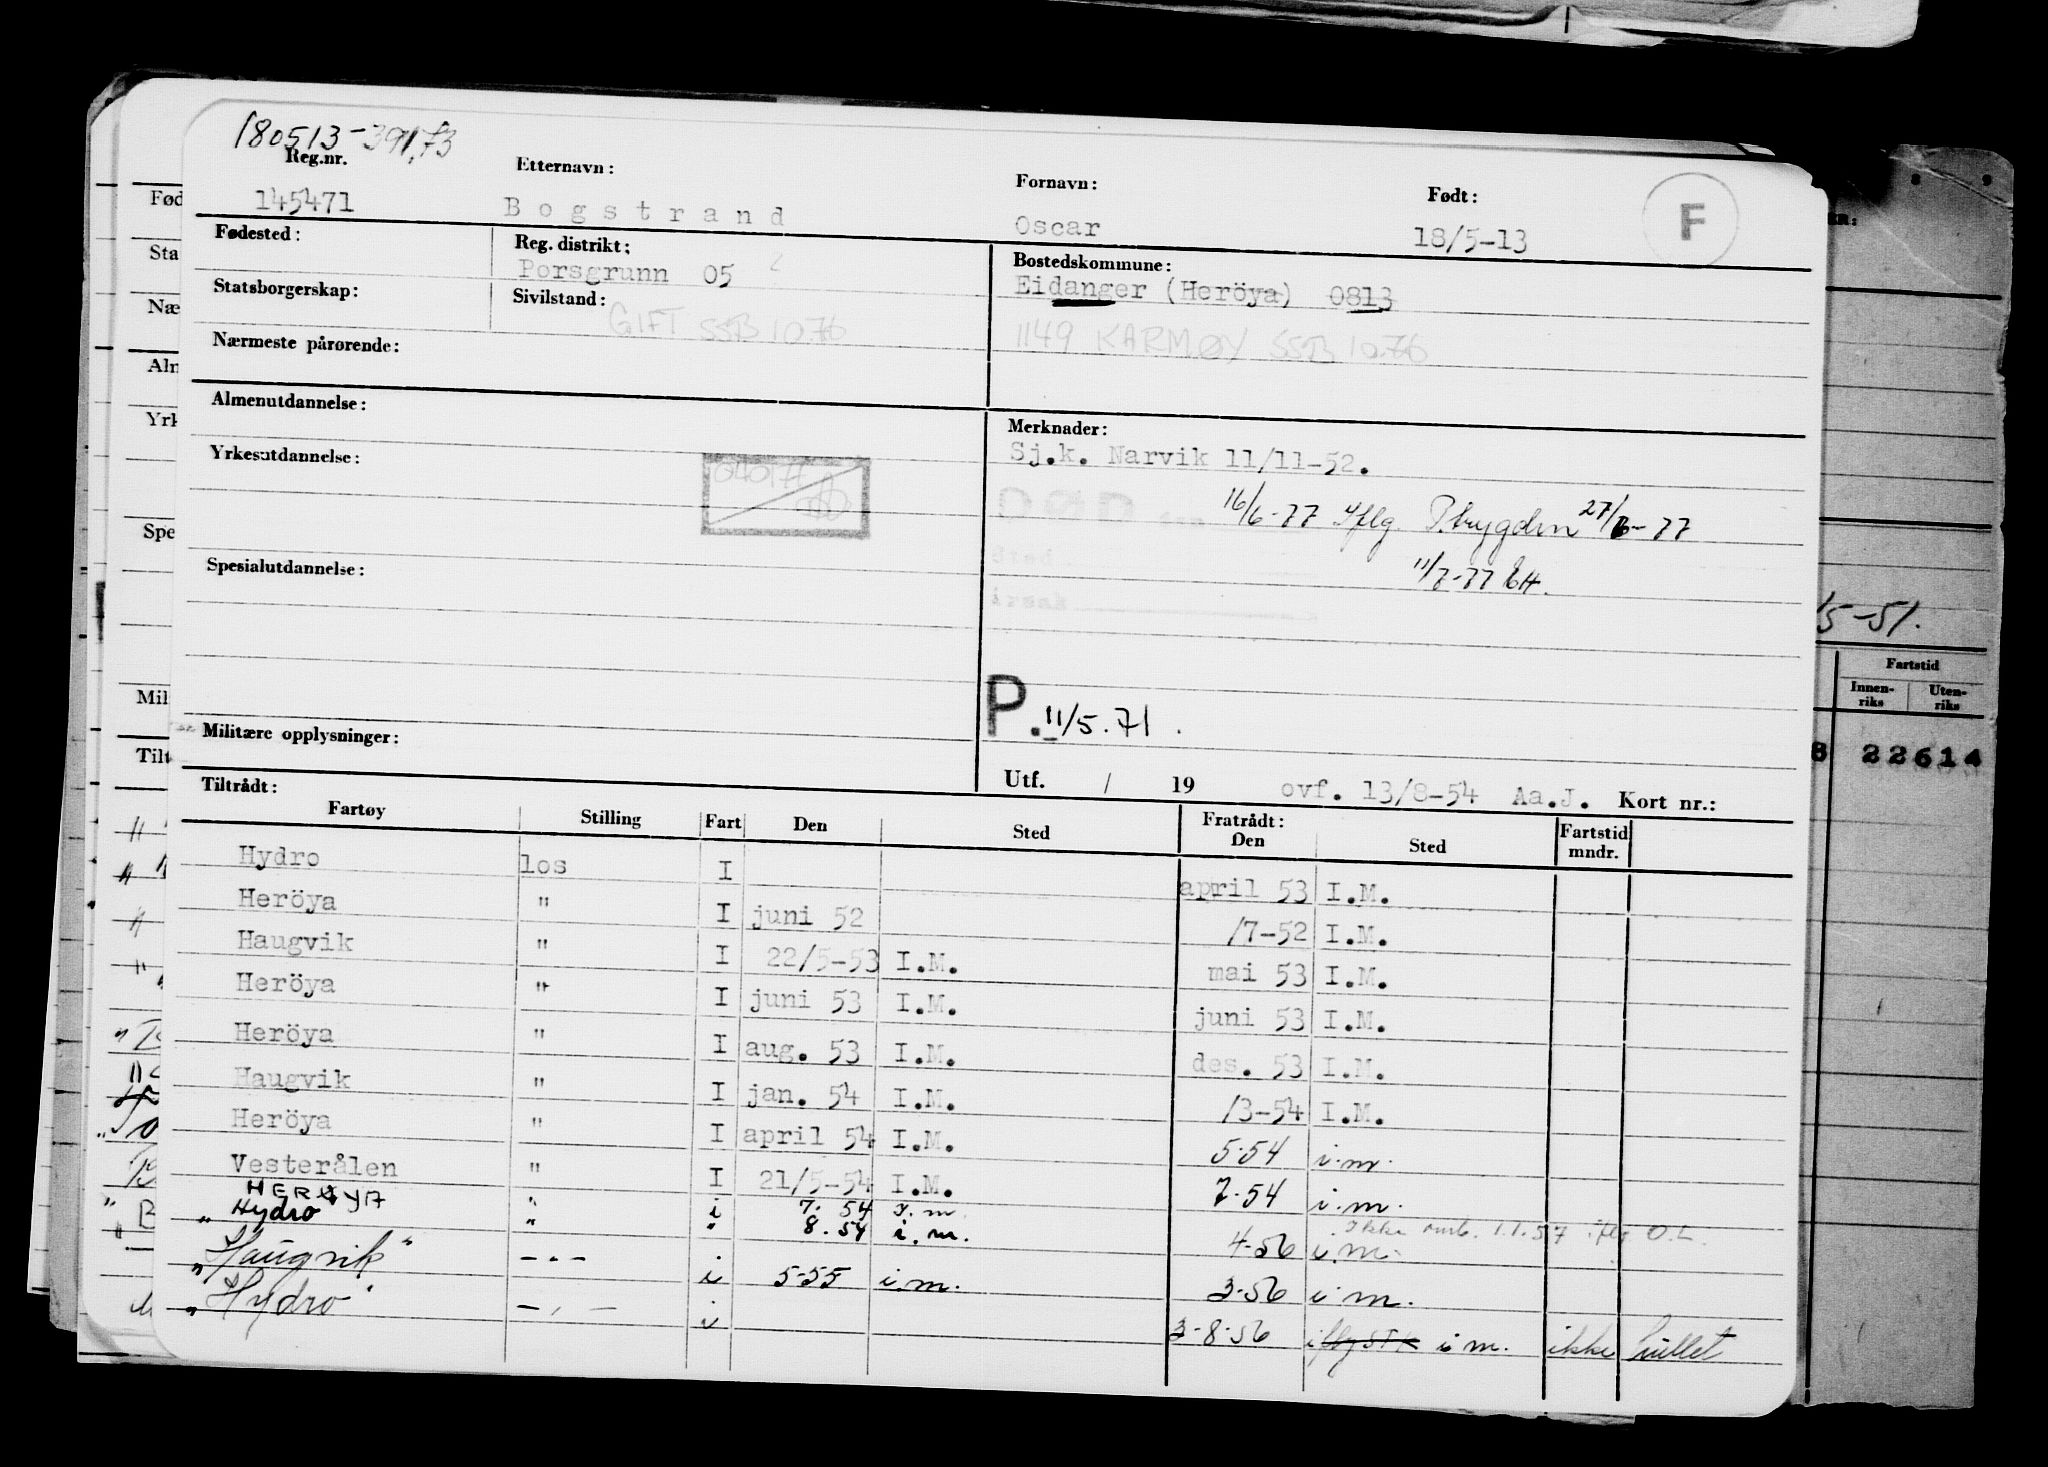 180513-39173
Reg.nr. Etternavn: Fornavn: Født:
145471 Bogstrand Oscar 18/5-13 F
Fødested: Reg. distrikt: Bostedskommune:
Porsgrunn 05 Eidanger (Heröya) 0813
Statsborgerskap: Sivilstand:
GIFT SSB 10.76 1149 KARMØY SSB 10.76
Nærmeste pårørende:
Almenutdannelse: Merknader:
Sj.k. Narvik 11/11-52.
Yrkesutdannelse:
DØD den 16/6-77 Iflg. P.trygden 27/6-77
Sted
11/7-77
Spesialutdannelse: årsak
P. 11/5.71.
Militære opplysninger:
Utf. / 19 ovf. 13/8-54 Aa.J. Kort nr.:
Tiltrådt: Fratrådt:
Fartøy Stilling Fart Den Sted Den Sted Fartstid mndr.
Hydro los I april 53 I.M.
Heröya " I juni 52 /7-52 I.M.
Haugvik " I 22/5-53 I.M. mai 53 I.M.
Heröya " I juni 53 I.M. juni 53 I.M.
Heröya " I aug. 53 I.M. des. 53 I.M.
Haugvik " I jan. 54 I.M. /3-54 I.M.
Heröya " I april 54 I.M. 5-54 i.m.
Vesterålen " I 21/5-54 I.M. 7-54 i.m.
HERØYA " i 7. 54 I.m.
"Hydro " " 8.54 i.m. 4-56 i.m. Ikke omb. 1.1.57 iflg O.L.
"Haugvik" -"- i 5-55 i.m. 3-56 i.m.
"Hydro" -"- i 3-8-56 i.m. ikke hullet
Fød
Sta
Næ
Alm
Yrk
Spe
Mil
Tilt
5-51.
Fartstid
Innenriks Utenriks
8 22614